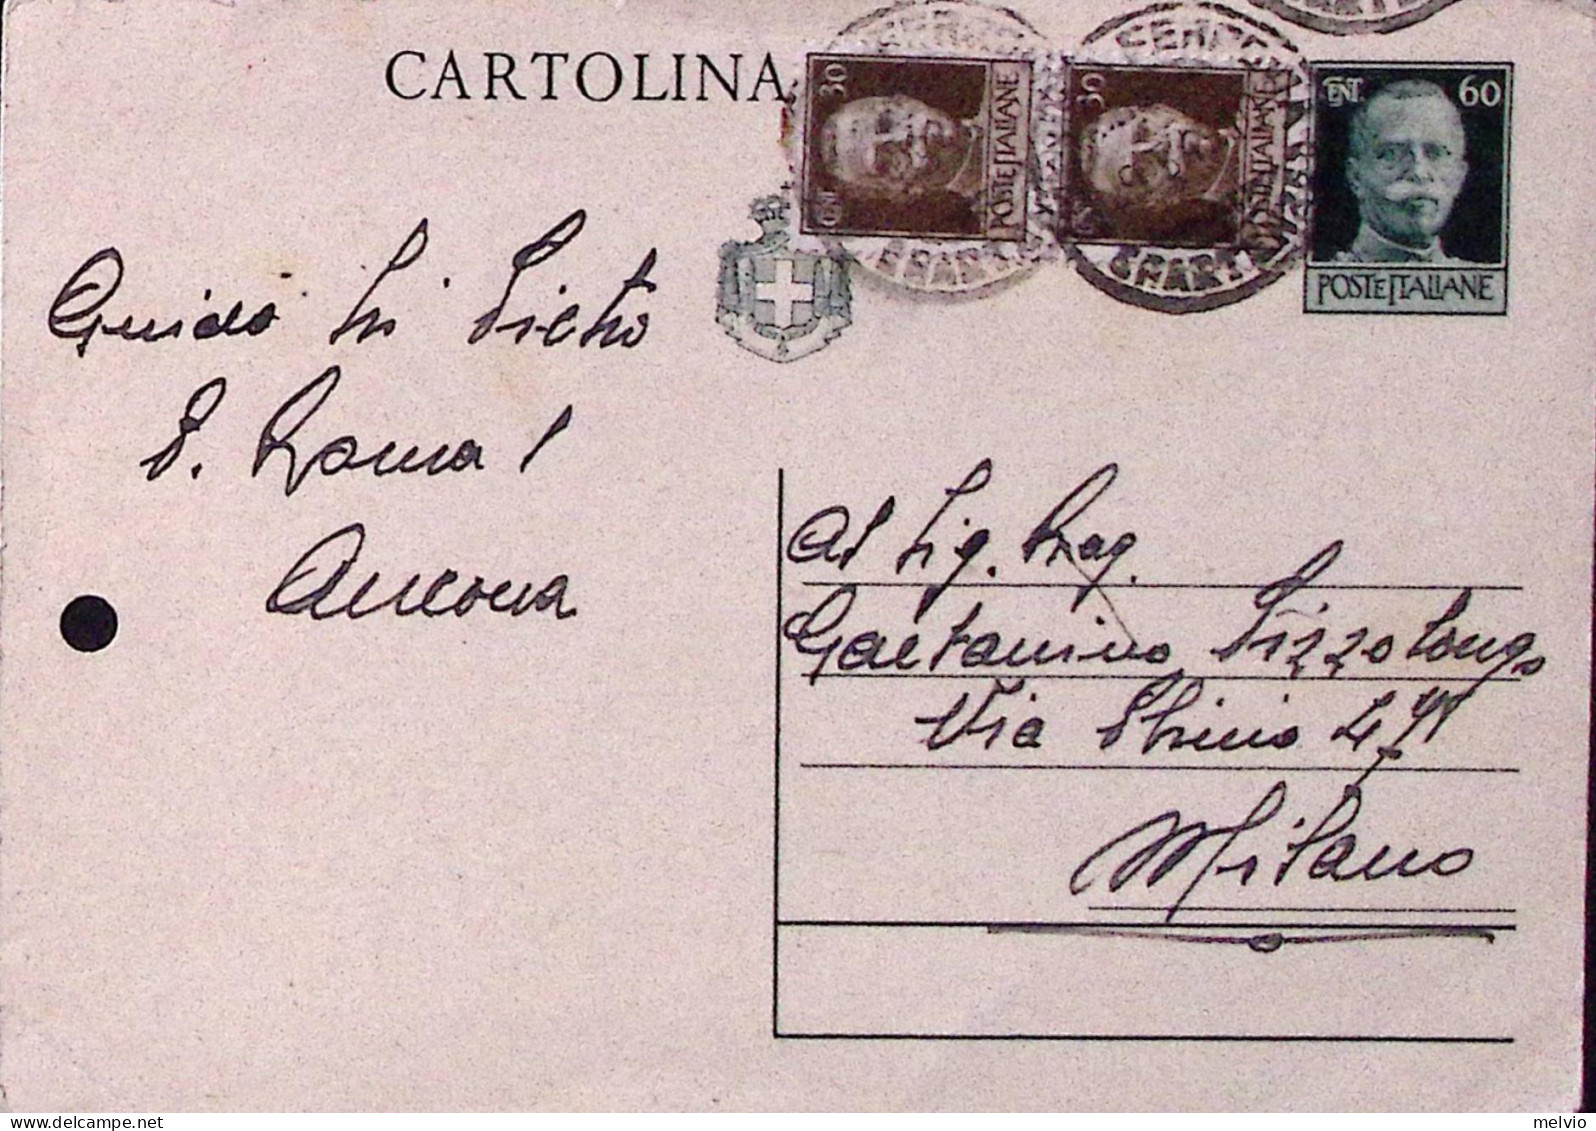 CARTOLINA
30
CENT.
POSTE ITALIANE
30
POSTE ITALIANE
CENT. 60
POSTE ITALIANE
Guido Di Pietro
P. Roma 1
Ancona
Al Sig. Rag.
Gaetanino Pizzolongo
Via Plinio
Milano
melvio